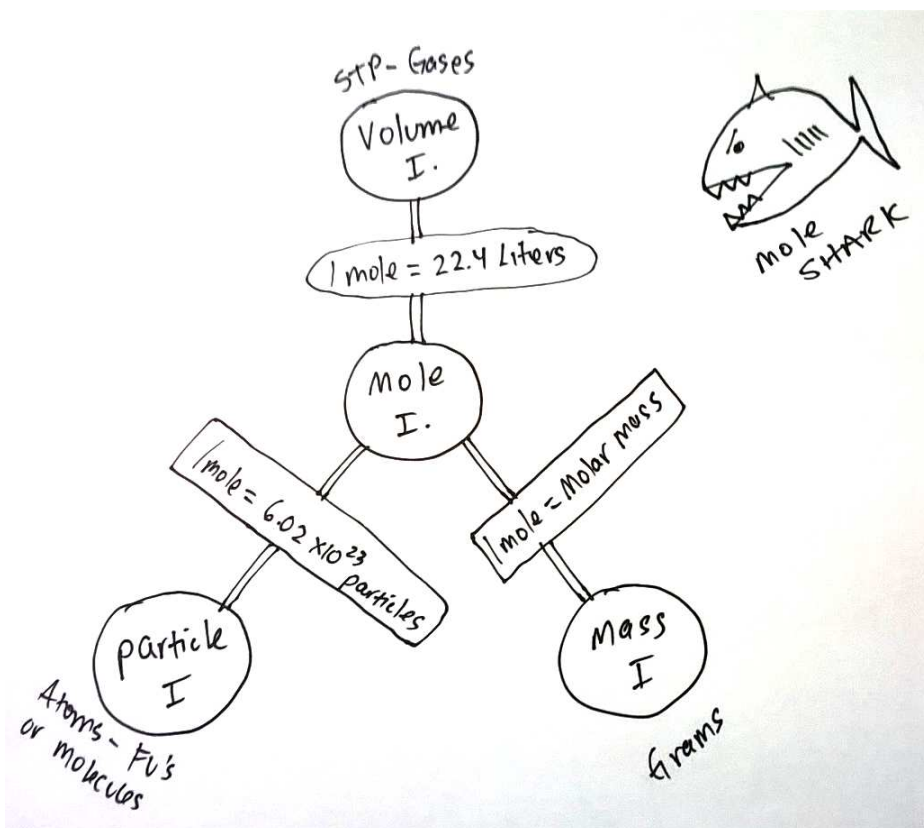 STP- Gases
Volume
I.
1 mole = 22.4 Liters
mole
SHARK
Mole
I.
1 mole = 6.02 x10²³
particles
1 mole = Molar mass
particle
I
Mass
I
Atoms - FU's
or molecules
Grams